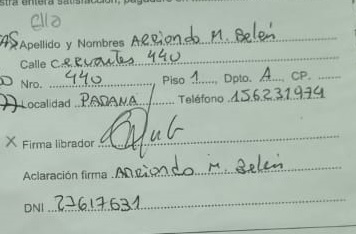 stra entera satisfacción,
ella
Apellido y Nombres Arriondo M. Belén
Calle Cervantes 440
Nro. 440 Piso 1 Dpto. A CP.
Localidad PARANA Teléfono 156231974
X Firma librador
Aclaración firma Arriondo M. Belén
DNI 27617631